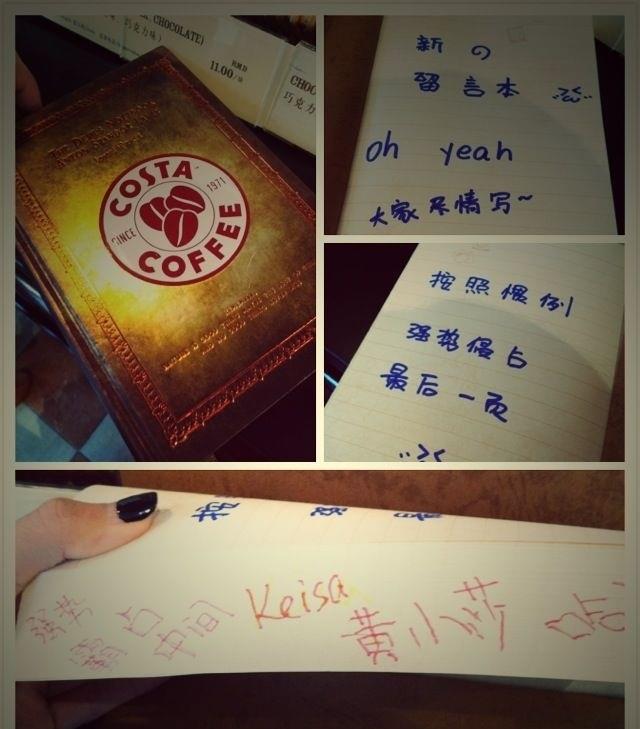 CHOCOLATE)
巧克力味)
RMB
11.00/块
CHOC
巧克力
COSTA
SINCE 1971
COFFEE
新の
留言本
oh yeah
大家尽情写~
按照惯例
强势侵占
最后一页
强势
霸占
中间
Keisa
黄小莎